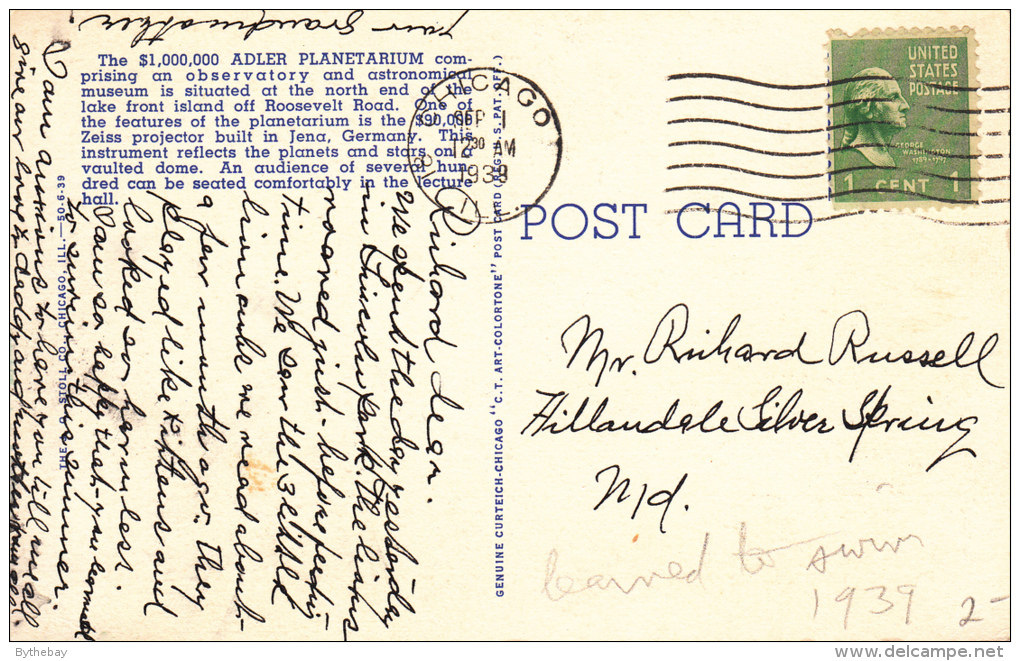 The $1,000,000 ADLER PLANETARIUM com-
prising an observatory and astronomical
museum is situated at the north end of the
lake front island off Roosevelt Road. One of
the features of the planetarium is the $90,000
Zeiss projector built in Jena, Germany. This
instrument reflects the planets and stars on a
vaulted dome. An audience of several hun-
dred can be seated comfortably in the lecture
hall.
CHICAGO
SEP 1
12 30 AM
1939
ILL.
UNITED
STATES
POSTAGE
GEORGE
WASHINGTON
1789-1797
1 CENT 1
POST CARD
Mr. Richard Russell
Hillandale Silver Spring
Md.
learned to swim
1939
2-
GENUINE CURTEICH-CHICAGO "C.T. ART-COLORTONE" POST CARD (REG. U.S. PAT. OFF.)
Richard dear.
We spent the day yesterday
in Lincoln park. The lions
roared just before feeding
time. We saw the 3 little
lion cubs we read about
a few months ago. they
played like kittens and
looked so harmless.
I am so happy that you learned
to swim this summer.
I am anxious to have you tell me all.
Give our love to daddy and mother
your Grandmother.
THE J. O. STOLL CO., CHICAGO, ILL.—50-6-39
Bythebay
delcampe.net